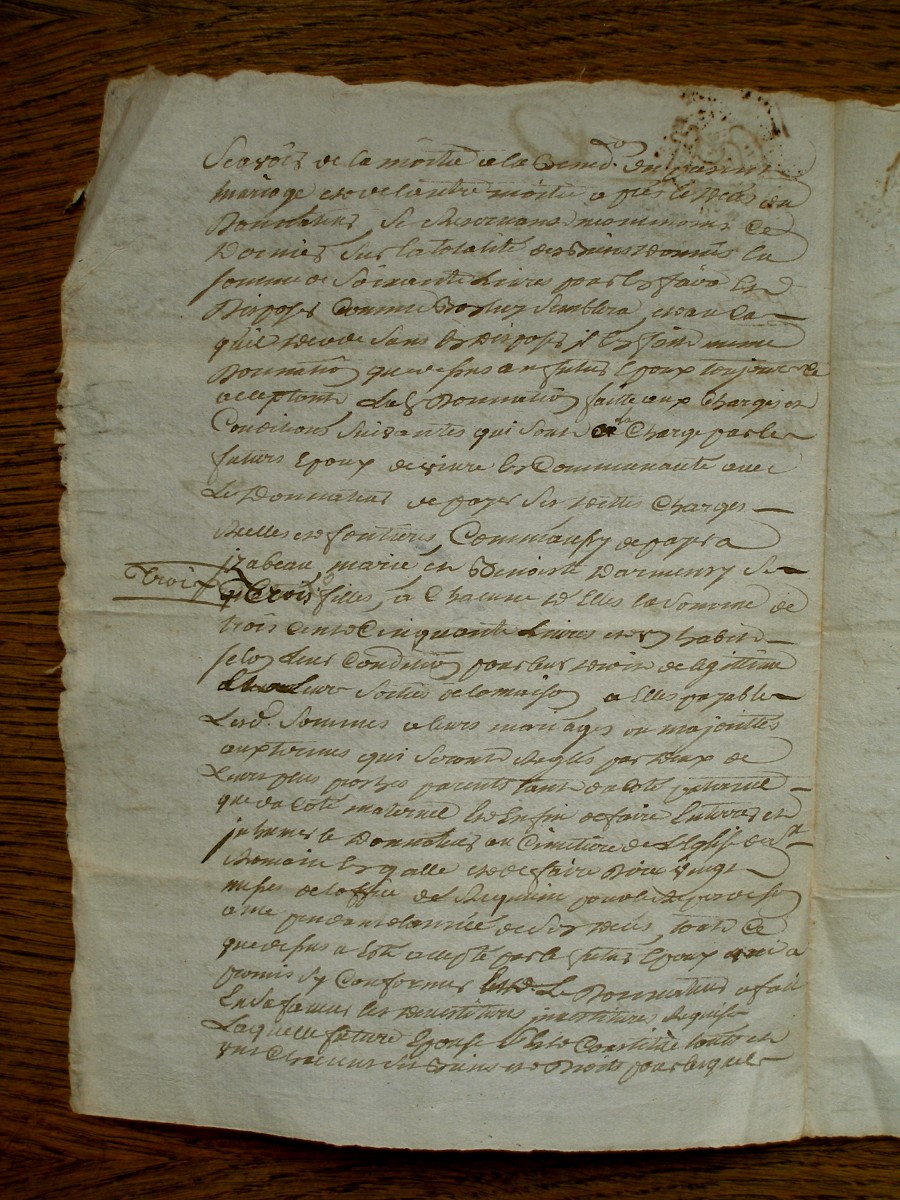 Scavoir de la moitie a la du present
mariage et de l'autre moitie apres le deces du
Donnateur Se Reservant neanmoins ce
Dernier Sur la totalité des biens donnés la
somme de Soixante Livres pour En
Disposer Comme bon luy Semblera, et au Ca
qu'il decede Sans En Disposer il En fait meme
Donnation que dessus au futur Epoux toujours
acceptant La d Donnation faitte aux Charges et
Conditions Suivantes qui Sont a la Charge par le
futur Epoux de vivre En Communauté avec
Le Donnateur de payer Ses dettes Charges
Reelles et foncieres Comme aussy de payer a
Izabeau, marie et Benoitte Ses
trois
trois filles, a Chacune d'Elles la Somme de
trois Cent Cinquante Livres et un habit
selon Leur Condition pour leur droit de legittime
Leur Sortie de la maison a Elles payable
Lesd. Sommes a leurs mariages ou majorittes
aux termes qui Seront Reglés par deux de
Leurs plus proches parents tant du coté paternel
que du Coté maternel Et Enfin de faire Enterrer et
inhumer le Donnateur au Cimetiere de L'Eglise de St
Romain et de faire Dire vingt
messes de l'office de Requiem pour le Repos de son
ame pendant l'année de Son deces, tout Ce
que dessus a Eté accepté par le futur Epoux qui a
promis s'y Conformer Le Donnateur a fait
En Sa faveur les devestitures investitures Requises
Laquelle future Epouse s'est Constituée touts et
uns Chacuns Ses Biens et Droits pour lesquels